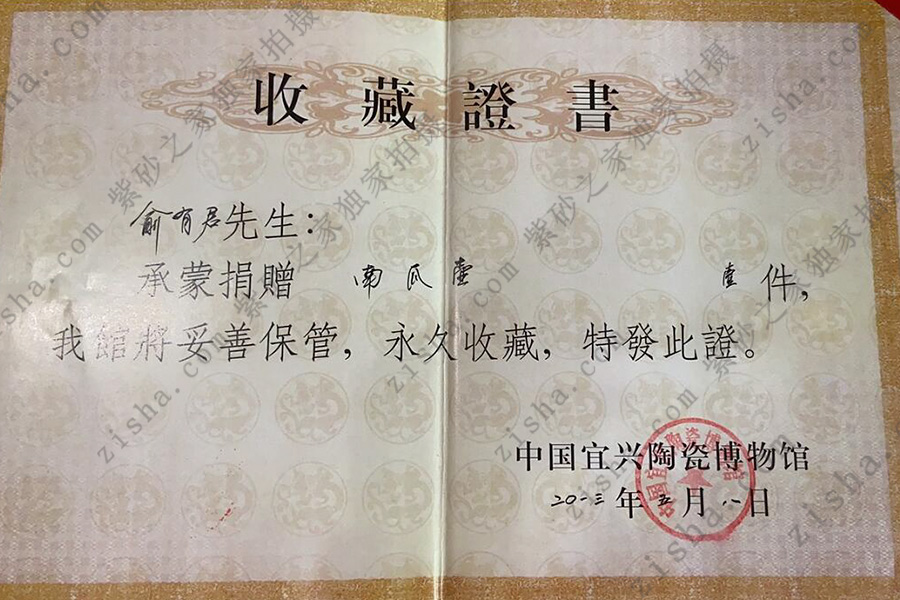 收藏證書
俞有君先生：
承蒙捐贈 南瓜壺 壹件，
我館將妥善保管，永久收藏，特發此證。
中国宜兴陶瓷博物馆
二〇一三年五月八日
中国宜兴陶瓷博物馆
紫砂之家独家拍摄
zisha.com